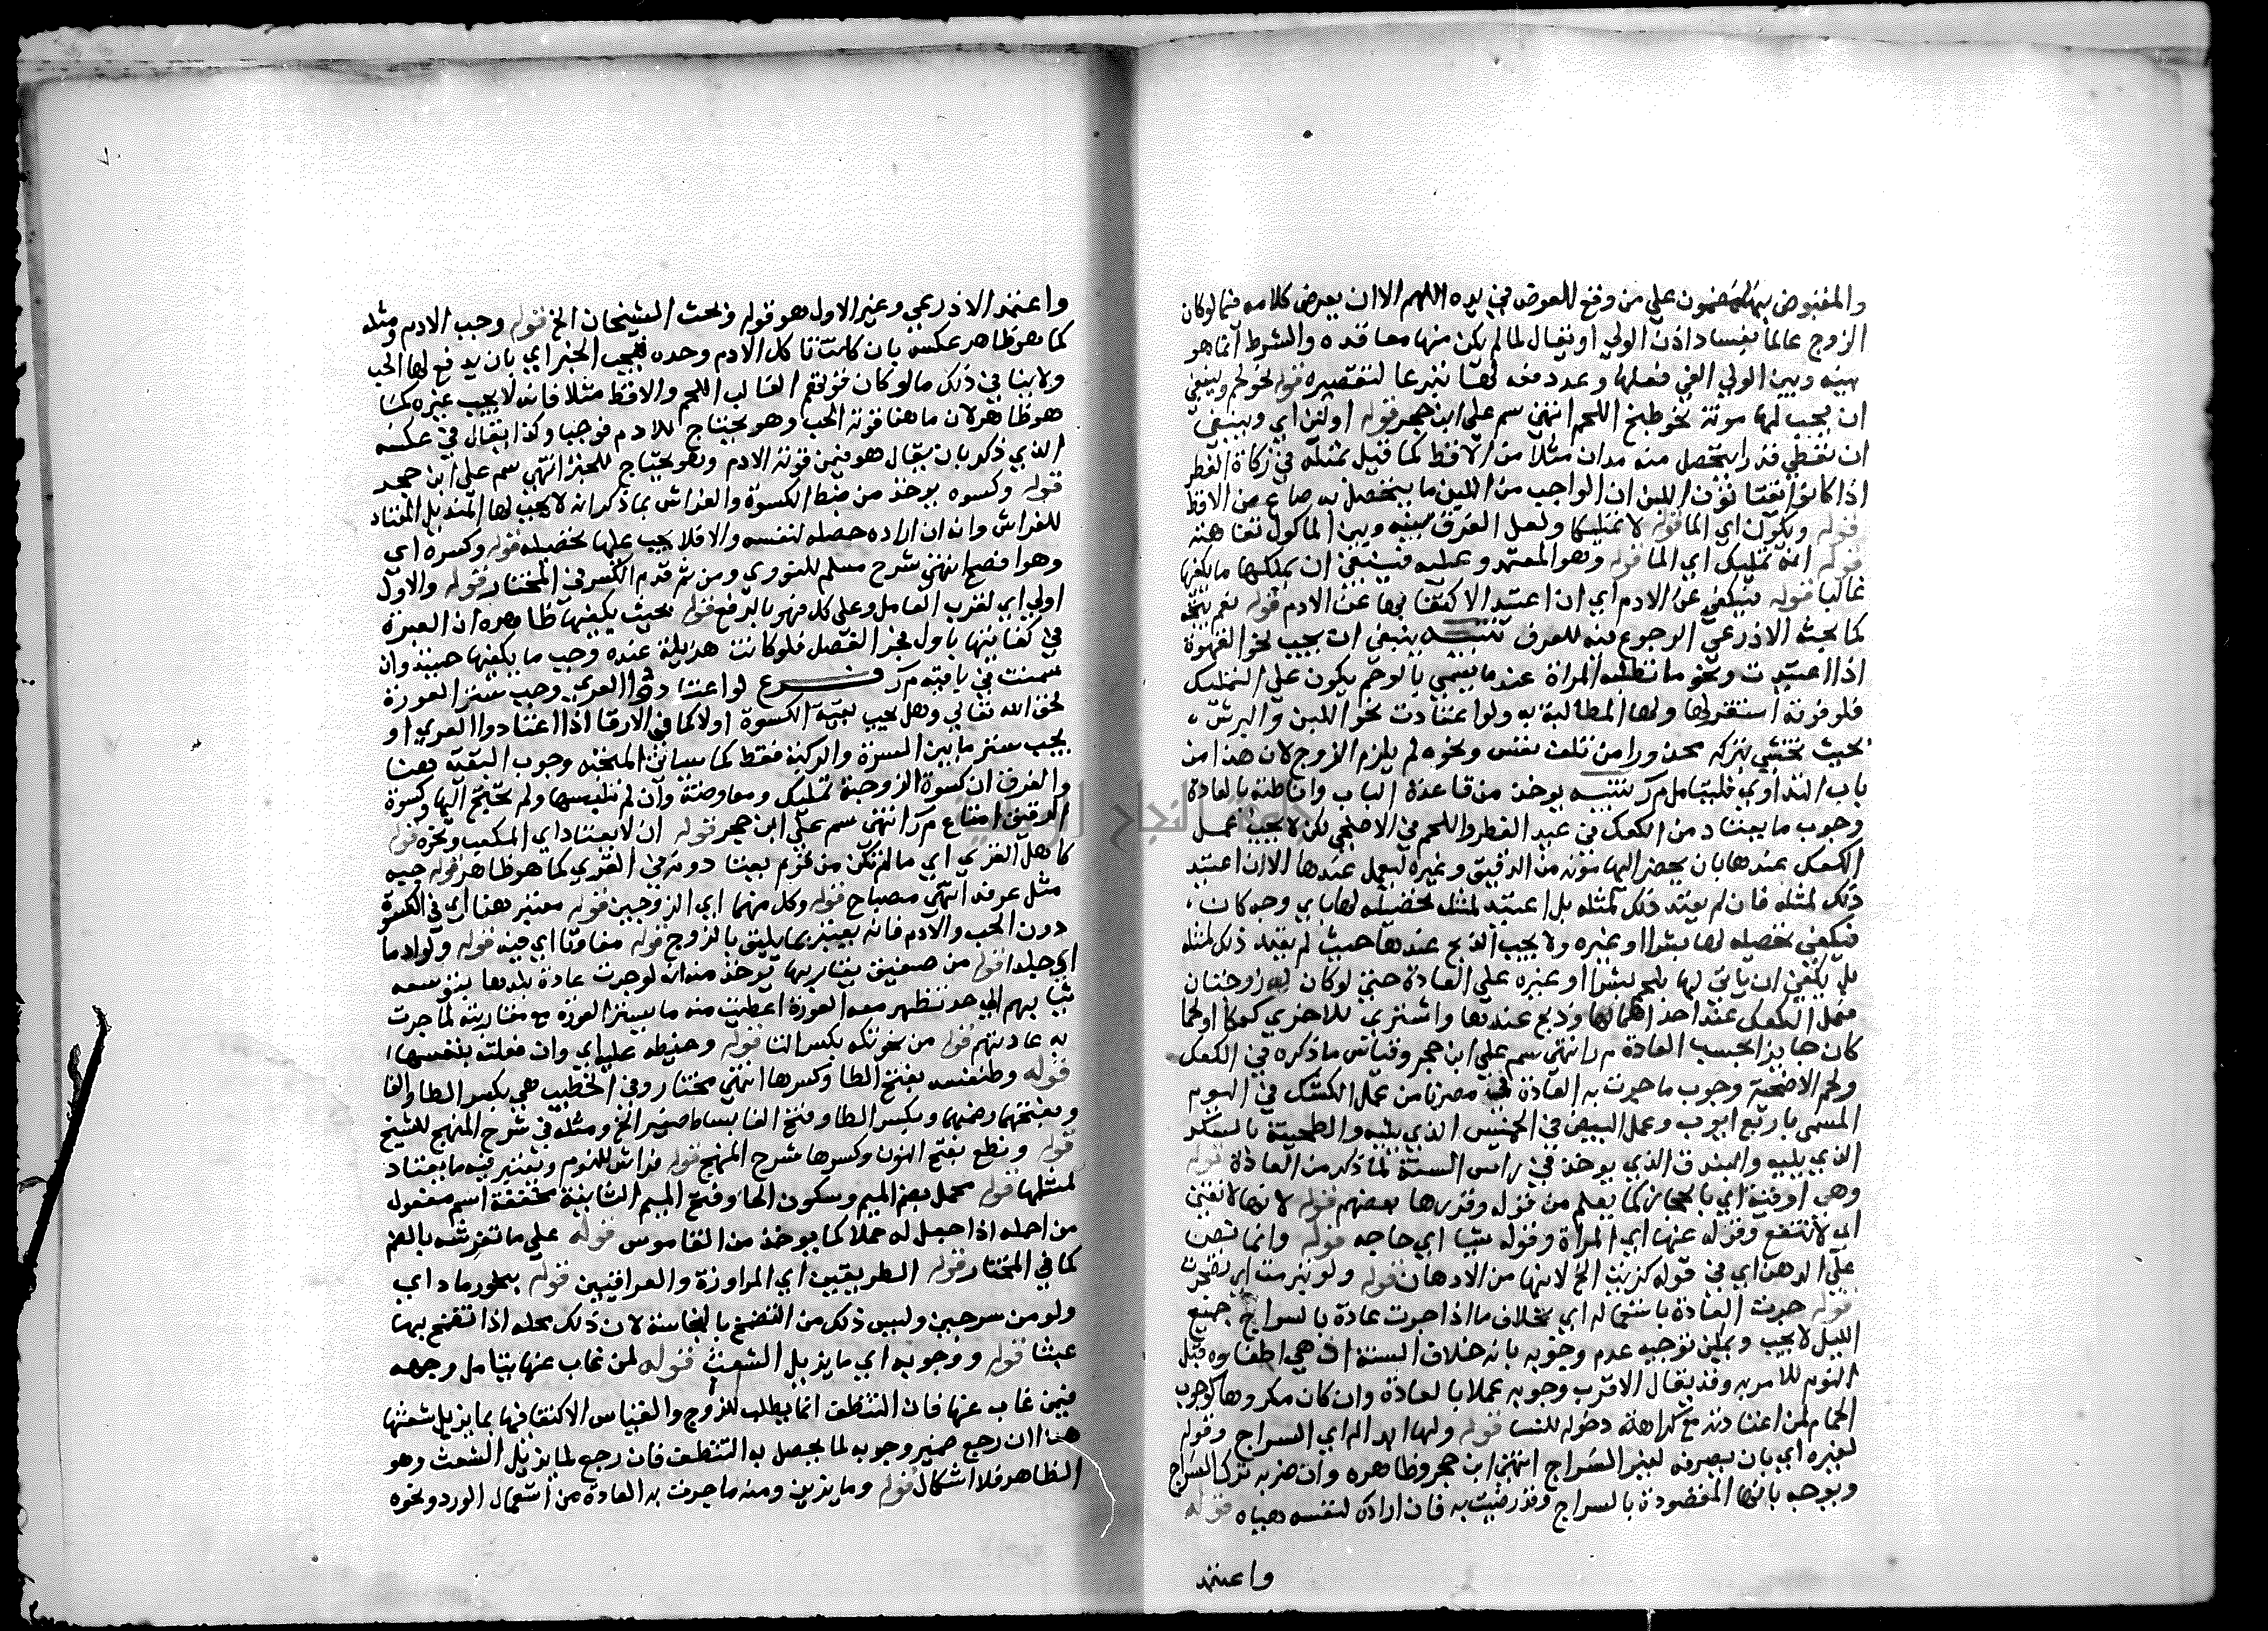 والمقبوض بها مضمون على من وقع للعوض في يده اللهم الا ان يعرض كلامه فيما لو كان
الزوج عالما بفساد اذن الولي او يقال لما لم يكن منها معاقدة والشرط انما هو
بينه وبين الولي الغي فعلها وعد دفعه لها تبرعا لتقصيره قوله نحو لحم وينبغي
ان يجب لها مونة نحو طبخ اللحم انتهى سم على ابن حجر قوله او لبن اي وينبغي
ان تعطي قدرا يتحصل منه مدان مثلا من الاقط كما قيل بمثله في زكاة الفطر
اذا كانوا يقتاتون اللبن ان الواجب من اللبن ما يتحصل به صاع من الاقط
قوله ويكون اي الما قوله لا تمليكا ولعل الفرق بينه وبين الماكول تفاهته
قوله انه تمليك اي الما قوله وهو المعتمد وعليه فينبغي ان يملكها ما يكفيها
غالبا قوله فيكفي عن الادم اي ان اعتيد الاكتفا بها عن الادم قوله نعم يتجه
كما بحثه الاذرعي الرجوع فيه للعرف تنبيه ينبغي ان يجب نحو القهوة
اذا اعتيدت ونحو ما تطلبه المراة عند ما يسمى بالوحم يكون على التمليك
فلو فوته استقر لها ولها المطالبة به ولو اعتادت نحو اللبن والبرش
بحيث تخشى بتركه محذورا من تلف نفس ونحوه لم يلزم الزوج لان هذا من
باب التداوي فليتامل م ر تنبيه يوخذ من قاعدة الباب واناطته بالعادة
وجوب ما يعتاد من الكعك في عيد الفطر واللحم في الاضحى لكن لا يجب عمل
الكعك عندها بان يحضر اليها مونه من الدقيق وغيره ليعمل عندها الا ان اعتيد
ذلك لمثله فان لم يعتد ذلك لمثله بل اعتيد لمثله تحصيله لها باي وجه كان
فيكفي تحصيله لها بشرا او غيره ولا يجب الذبح عندها حيث لم يعتد ذلك لمثله
بل يكفي ان ياتي لها بلحم بشرا او غيره على العادة حتى لو كان له زوجتان
فعمل الكعك عند احداهما وذبح عندها واشترى للاخرى كعكا او لحما
كان جايزا بحسب العادة م ر انتهى سم على ابن حجر وقياس ما ذكره في الكعك
ولحم الاضحية وجوب ما جرت به العادة في مصرنا من عمل الكشك في اليوم
المسمى باربع ايوب وعمل البيض في الخميس الذي يليه والطحينة بالسكر
الذي يليه والبندق الذي يوخذ في راس السنة لما ذكر من العادة قوله
وهي اوقية اي بالحجاز كما يعلم من قوله وقدرها بعضهم قوله لانها لا تغني
اي لا تنتفع وقوله عنها اي المراة وقوله شيا اي حاجه قوله وانما نص
على الدهن اي في قوله كزيت الخ لانها من الادهان قوله ولو تبرمت اي تضجرت
قوله جرت العادة باستعماله اي بخلاف ما اذا جرت عادة بالسراج جميع
الليل لا يجب ويمكن توجيه عدم وجوبه بانه خلاف السنة اذ هي اطفاوه قبل
النوم للامر به وقد يقال الاقرب وجوبه عملا بالعادة وان كان مكروها كوجوب
الحمام لمن اعتادته مع كراهة دخوله للنسا قوله ولها ابداله اي السراج وقوله
لغيره اي بان يصرفه لغير السراج انتهى ابن حجر وظاهره وان ضربه ترك السراج
ويوجه بانها المقصودة بالسراج وقد رضيت به فان اراده لنفسه هياه قوله
واعتمد
واعتمد الاذرعي وغيره الاول هو قوله وبحث الشيخان الخ قوله وجب الادم ومثله
كما هو ظاهر عكسه بان كانت تاكل الادم وحده فيجب الخبز اي بان يدفع لها الحب
ولا ينافي ذلك ما لو كان قوتهم الغالب اللحم والاقط مثلا فانه لا يجب غيره كما
هو ظاهر لان ما هنا قوته الحب وهو يحتاج للادم فوجبا وكذا يقال في عكسه
الذي ذكر بان يقال هو فيمن قوته الادم وهو يحتاج للخبز انتهى سم على ابن حجر
قوله وكسوه يوخذ من ضبط الكسوة والفراش بما ذكر انه لا يجب لها المنديل المعتاد
للفراش وانه ان اراده حصله لنفسه والا فلا يجب عليها تحصيله قوله وكسره اي
وهو افصح انتهى شرح مسلم للنووي ومن ثم قدم الكسر في المختار قوله والاول
اولى اي لقرب العامل وعلى كل فهو بالرفع قوله بحيث يكفيها ظاهره ان العبرة
في كفايتها باول فجر الفصل فلو كانت هزيلة عنده وجب ما يكفيها حينيذ وان
سمنت في باقيه م ر فرع لو اعتادوا العري وجب ستر العورة
لحق الله تعالى وهل يجب بقية الكسوة اولا كما في الارقا اذا اعتادوا العري او
يجب ستر ما بين السرة والركبة فقط كما سياتي المتجه وجوب البقية هنا
والفرق ان كسوة الزوجية تمليك ومعاوضة وان لم تلبسها ولم تحتج اليها وكسوة
الرقيق امتاع م ر انتهى سم على ابن حجر قوله ان لا يعتاد اي المكعب ونحوه قوله
كاهل القرى اي ما لم تكن من قوم يعتادونه في القرى كما هو ظاهر قوله جبة
مثل غرفة انتهى مصباح قوله وكل منهما اي الزوجين قوله معتبر هنا اي في الكسوة
دون الحب والادم فانه يعتبر بما يليق بالزوج قوله مفاوتا اي فيه قوله ولو ادما
اي جلدا قوله من صفيق يقاربها يوخذ منه انه لو جرت عادة بلدها بتوسعه
ثيابهم الى حد تظهر معه العورة اعطيت منه ما يستر العورة مع مقاربته لما جرت
به عادتهم قوله من نحو تكه بكسر التا قوله وخيطه عليه اي وان فعلته بنفسها
قوله وطنفسه بفتح الطا وكسرها انتهى مختار وفي الخطيب هي بكسر الطا والفا
وبفتحهما وضمهما وبكسر الطا وفتح الفا بساط صغير الخ ومثله في شرح المنهج للشيخ
قوله ونطع بفتح النون وكسرها شرح المنهج قوله فراش للنوم ويعتبر فيه ما يعتاد
لمثلها قوله مخمل بضم الميم وسكون الخا وفتح الميم الثانية مخففة اسم مفعول
من اخمله اذا جعل له خملا كما يوخذ من القاموس قوله على ما تفرشه بالضم
كما في المختار قوله الطريقين اي المراوزة والعراقيين قوله بنحو رماد اي
ولو من سرجين وليس ذلك من التضمخ بالنجاسة لان ذلك محله اذا تضمخ بها
عبثا قوله ووجوبه اي ما يزيل الشعث قوله لمن غاب عنها يتامل وجهه
فيمن غاب عنها فان التنظف انما يطلب للزوج والقياس الاكتفا فيها بما يزيل شعثها
هذا ان رجع ضمير وجوبه لما يحصل به التنظف فان رجع لما يزيل الشعث وهو
الظاهر فلا اشكال قوله وما يزين ومنه ما جرت به العادة من استعمال الورد ونحوه